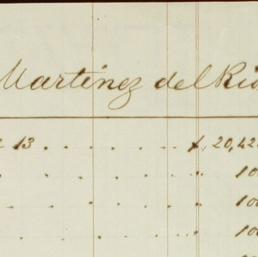 Martinez del Rio
13 . . . . . . $ 20,42
. . . . . " 10
. . . . . " 10
. . . . . " 10